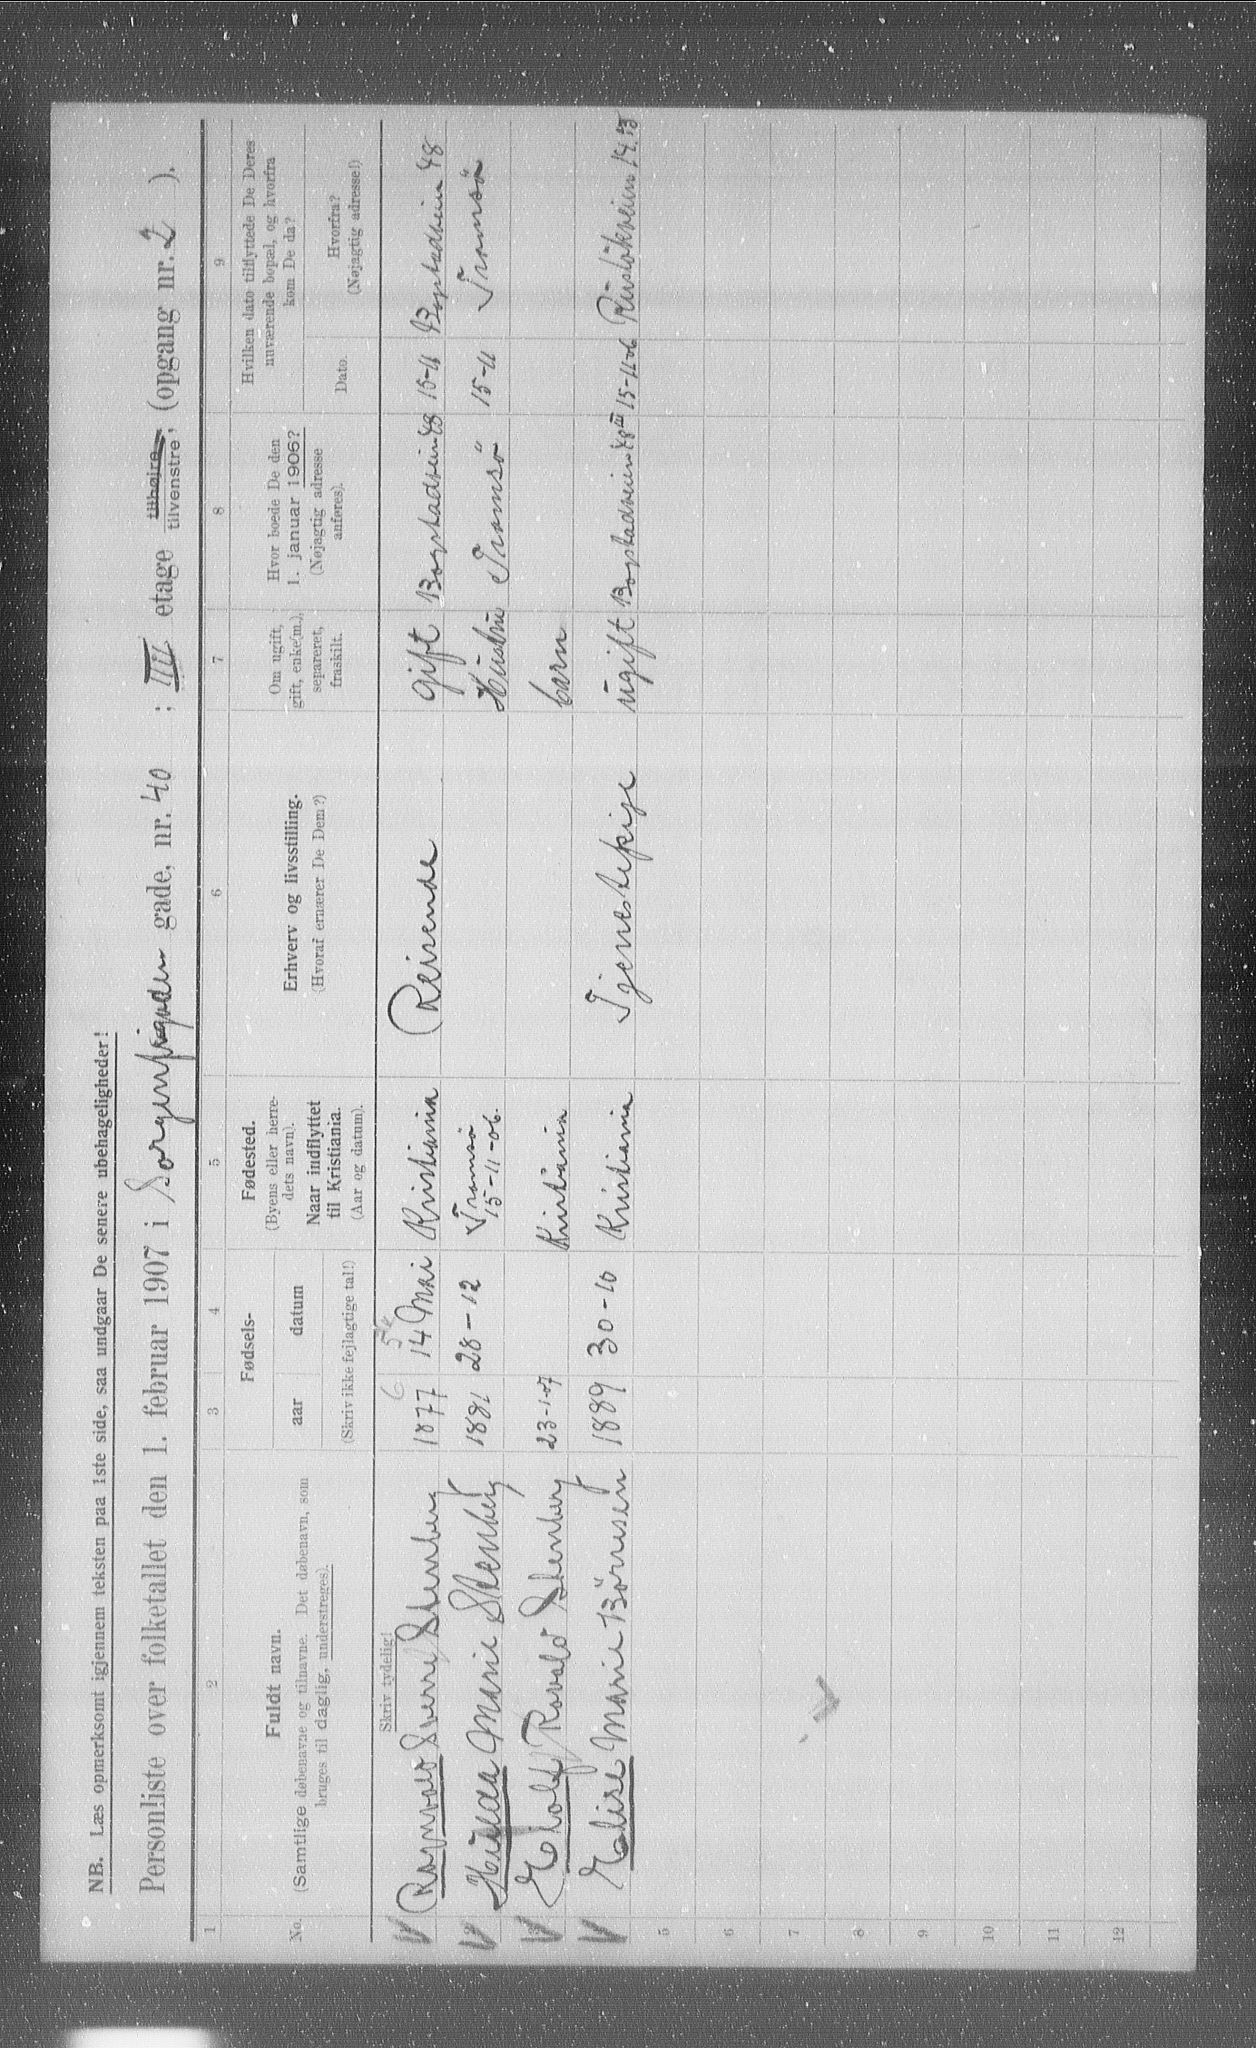 NB. Læs opmerksomt igjennem teksten paa 1ste side, saa undgaar De senere ubehageligheder!
Personliste over folketallet den 1. februar 1907 i Sorgenfrigaden gade, nr. 40 ; III etage tilhøire tilvenstre, (opgang nr. 2 ).
1 2 3 4 5 6 7 8 9
No.
Fuldt navn.
(Samtlige døbenavne og tilnavne. Det døbenavn, som
bruges til daglig, understreges).
Fødsels-
aar datum
(Skriv ikke feilagtige tal!)
Fødested.
(Byens eller herre-
dets navn).
Naar indflyttet
til Kristiania.
(Aar og datum).
Erhverv og livsstilling.
(Hvoraf ernærer De Dem?)
Om ugift,
gift, enke(m.),
separeret,
fraskilt.
Hvor boede De den
1. januar 1906?
(Nøjagtig adresse
anføres).
Hvilken dato tilflyttede De Deres
nuværende bopæl, og hvorfra
kom De da?
Dato.
Hvorfra?
(Nøjagtig adresse!)
Skriv tydelig!
Ragnvald Sverre Stenberg 1877 14 Mai Kristiania Reisende gift Bogstadveien 48 15-11 Bogstadveien 48
Hilda Marie Stenberg 1881 28-12 Tromsö 15-11-06. Hustru Tromsö 15-11 Tromsö
3 Stenberg 23-1-07 Kristiania barn
Elise Marie Börresen 1889 30-10 Kristiania Tjenestepige ugift Bogstadveien 48 III 15-11-06 Rüsulökveien 14.
5
6
7
8
9
10
11
12